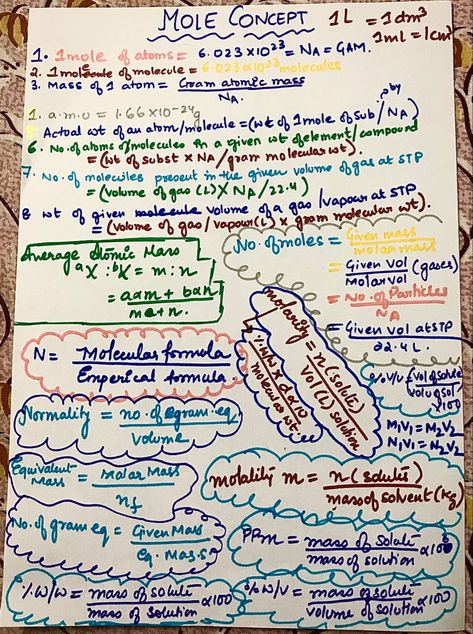 MOLE CONCEPT
1L = 1dm³
1ml = 1cm³
1. 1mole of atoms = 6.023×10²³ = NA = GAM.
2. 1 molecule of molecule = 6.023×10²³ molecules
3. Mass of 1 atom = Gram atomic mass / NA.
1. a.m.u = 1.66×10⁻²⁴g
5 Actual wt of an atom/molecule = (wt of 1mole of sub/by NA)
6. No. of atoms/molecules in a given wt of element/compound
= (wt of subst × NA/gram molecular wt).
7. No. of molecules present in the given volume of gas at STP
= (volume of gas (L) × NA/22.4)
8 wt of given molecule volume of a gas/vapour at STP
= (volume of gas/vapour(L) × gram molecular wt).
Average Atomic Mass
ᵃX : ᵇX = m : n
= axm + bxn / m+n.
No. of moles = Given mass / molar mass
= Given vol / Molar vol (gases)
= No. of Particles / NA
= Given vol at STP / 22.4 L.
N = Molecular formula / Emperical formula
molarity = n(solute) / vol(L) solution
% w/w × d × 10 / molecular wt
% v/v = vol of solute / vol of sol × 100
M₁V₁ = M₂V₂
N₁V₁ = N₂V₂
Normality = no. of gram. eq. / volume
Equivalent Mass = Molar Mass / nf
molality m = n(solute) / mass of solvent (Kg)
No. of gram eq = Given Mass / Eq. Mass
PPm = mass of solute / mass of solution ×10⁶
% w/w = mass of solute / mass of solution ×100
% w/v = mass of solute / volume of solution ×100